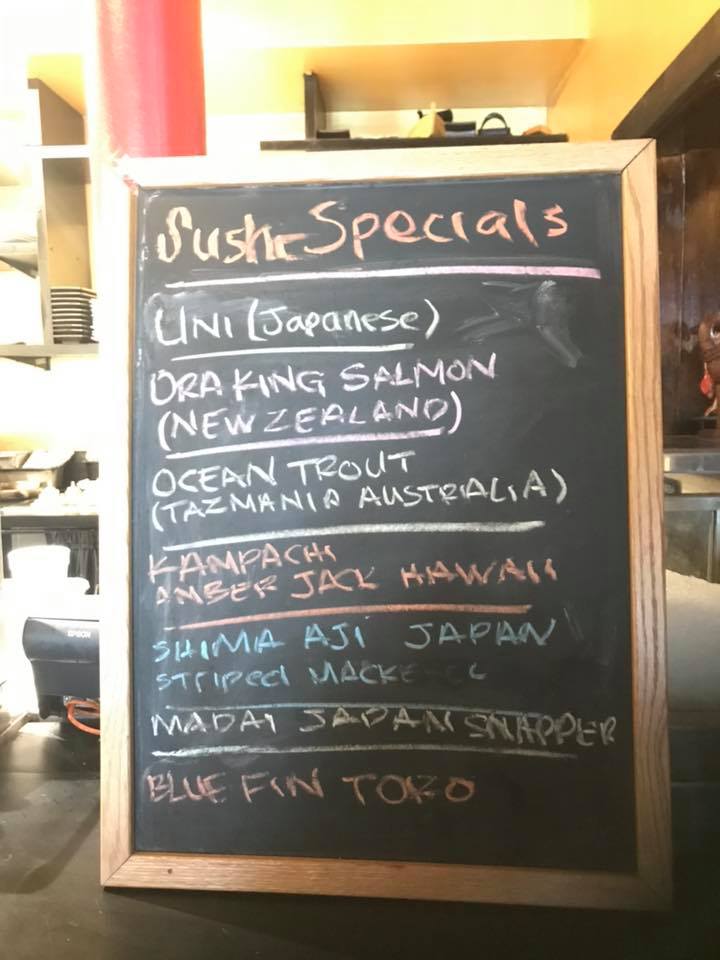 Sushi Specials
UNI (Japanese)
ORA KING SALMON
(NEW ZEALAND)
OCEAN TROUT
(TAZMANIA AUSTRALIA)
KAMPACHI
AMBER JACK HAWAII
SHIMA AJI JAPAN
STRIPED MACKEREL
MADAI JAPAN SNAPPER
BLUE FIN TORO
EPSON